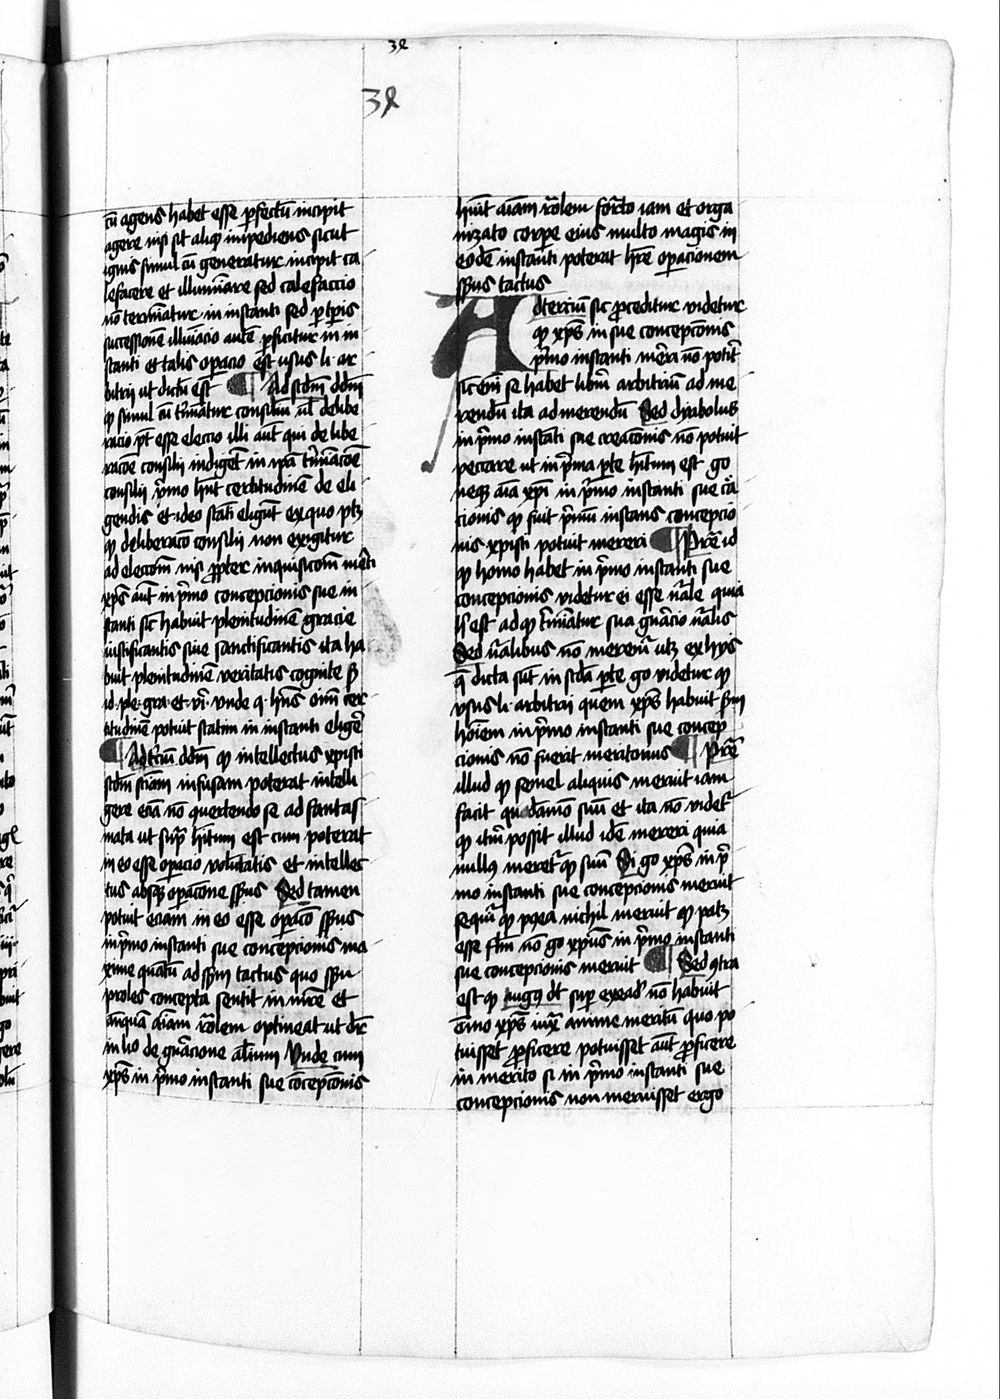 38
38
cu agens habet esse perfectu incipit
agere nisi sit aliqd impediens sicut
ignis simul cu generatur incipit ca
lefacere et illuminare sed calefactio
no terminatur in instanti sed per tpis
successione illuminacio aute perficitur in in
stanti et talis operacio est usus li ar
bitrii ut dictu est Ad scdm ddm
qp simul cu tminatur consiliu ul delibe
racio pt esse eleccio illi aut qui delibe
racoe consilii indiget in ipa tminacoe
consilii primo hnt certitudine de eli
gendis et ideo stati eligut ex quo ptz
qp deliberaco consilii non exigitur
ad eleccom nisi propter inquisicom
xps aut in primo concepcionis sue in
stanti sic habuit plenitudine gracie
iustificantis sive sanctificantis ita ha
buit plenitudine veritatis cognite
id ple gra et vi unde q hns oim cer
titudine potuit statim in instanti eliger
Ad tciu ddm qp intellectus xpisti
scdm sciam infusam poterat intelli
gere ecia no quertendo se ad fantas
mata ut supra hitum est cum poterat
in eo esse operacio voluntatis et intellec
tus absqz operacone spus Sed tamen
potuit eciam in eo esse operaco spus
in primo instanti sue concepcionis ma
xime quatu ad spum tactus quo spu
proles concepta sentit in mre et
anqua aiam rolem optineat ut dr
in lio de gnacione alium Unde cum
xps in primo instanti sue concepconis
huit aiam rolem formato iam et orga
nizato corpe eius multo magis in
eode instanti poterat hre operacionem
spus tactus
Ad terciu sic proceditur videtur
qp xps in sue concepconis
primo instanti meri no potit
sic eni se habet libm arbitriu ad me
rendu ita ad merendu Sed dyabolus
in primo instati sue creaconis no potuit
peccare ut in prima pte hitum est go
neqz aia xpi in primo instanti sue cra
cionis qp fuit primu instans concepcio
nis xpisti potuit mereri Prea id
qp homo habet in primo instanti sue
concepcionis videtur ei esse nrale quia
h est ad qp tminatur sua gnacio nralis
Sed nralibus no meremur utz ex hys
q dicta sut in scda pte go videtur qp
usus li arbitrii quem xps habuit sm
hoiem in primo instanti sue concep
cionis no fuerit meritorius Prea
illud qp semel aliquis meruit iam
facit quodamo suu et ita no videtr
qp itm possit illud ide mereri quia
nullus meretr qp suu Si go xps in pri
mo instanti sue concepcionis meruit
sequr qp postea nichil meruit qp patz
esse flm no go xpus in primo instanti
sue concepcionis meruit Sed contra
est qp augus dt super exod no habuit
oino xps iuxta anime meritu quo po
tuisset proficere potuisset aut proficere
in merito si in primo instanti sue
concepcionis non meruisset ergo